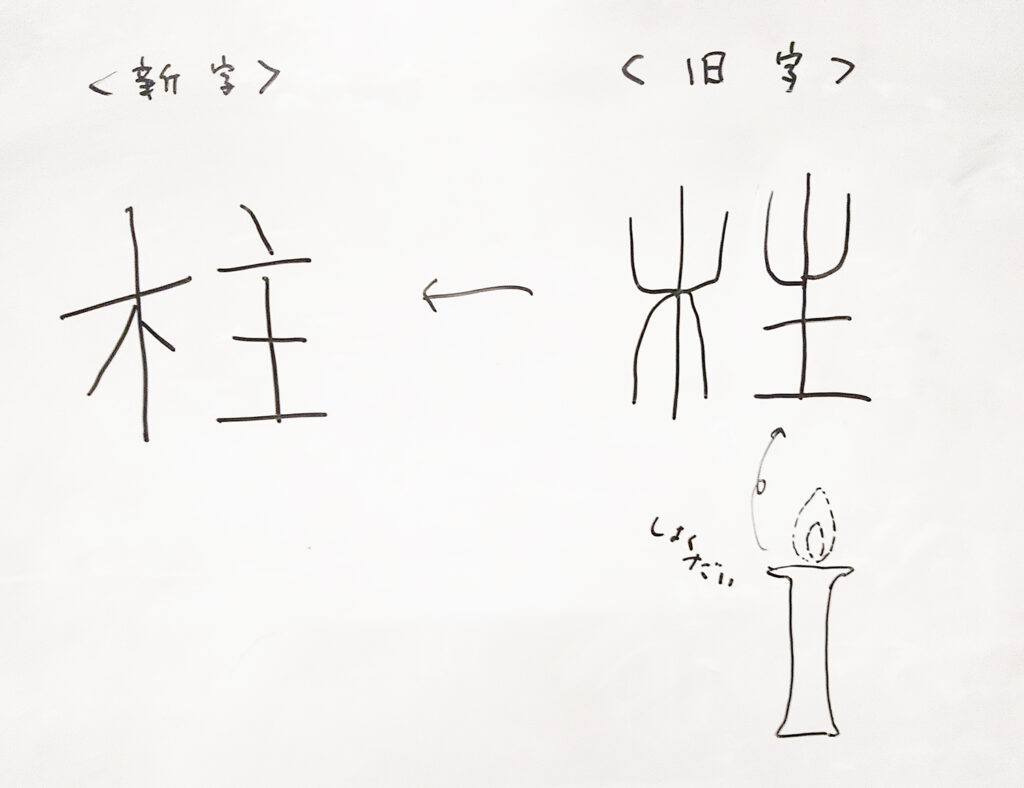 <新字>
<旧字>
柱
しょくだい